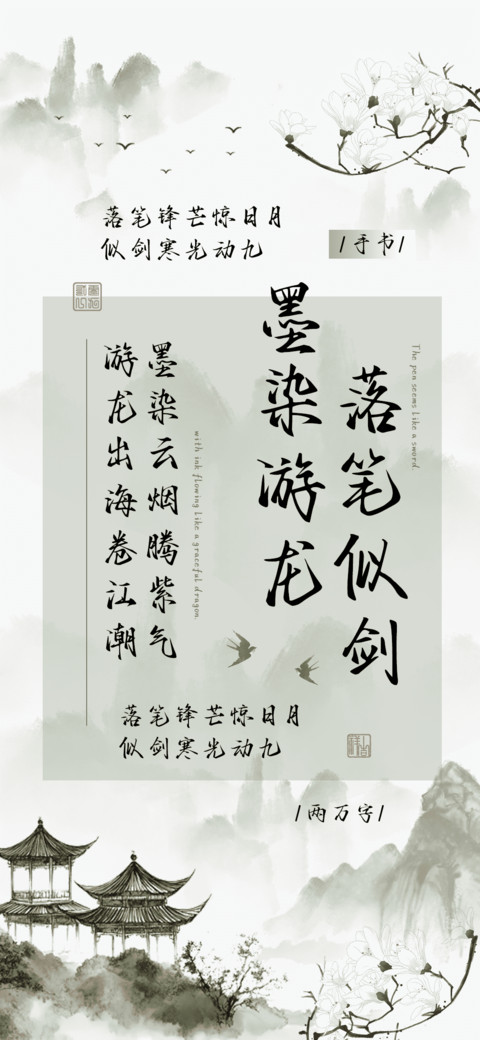 落笔锋芒惊日月
似剑寒光动九
/手书/
The pen seems like a sword.
落笔似剑
墨染游龙
with ink flowing like a graceful dragon.
墨染云烟腾紫气
游龙出海卷江潮
落笔锋芒惊日月
似剑寒光动九
/两万字/